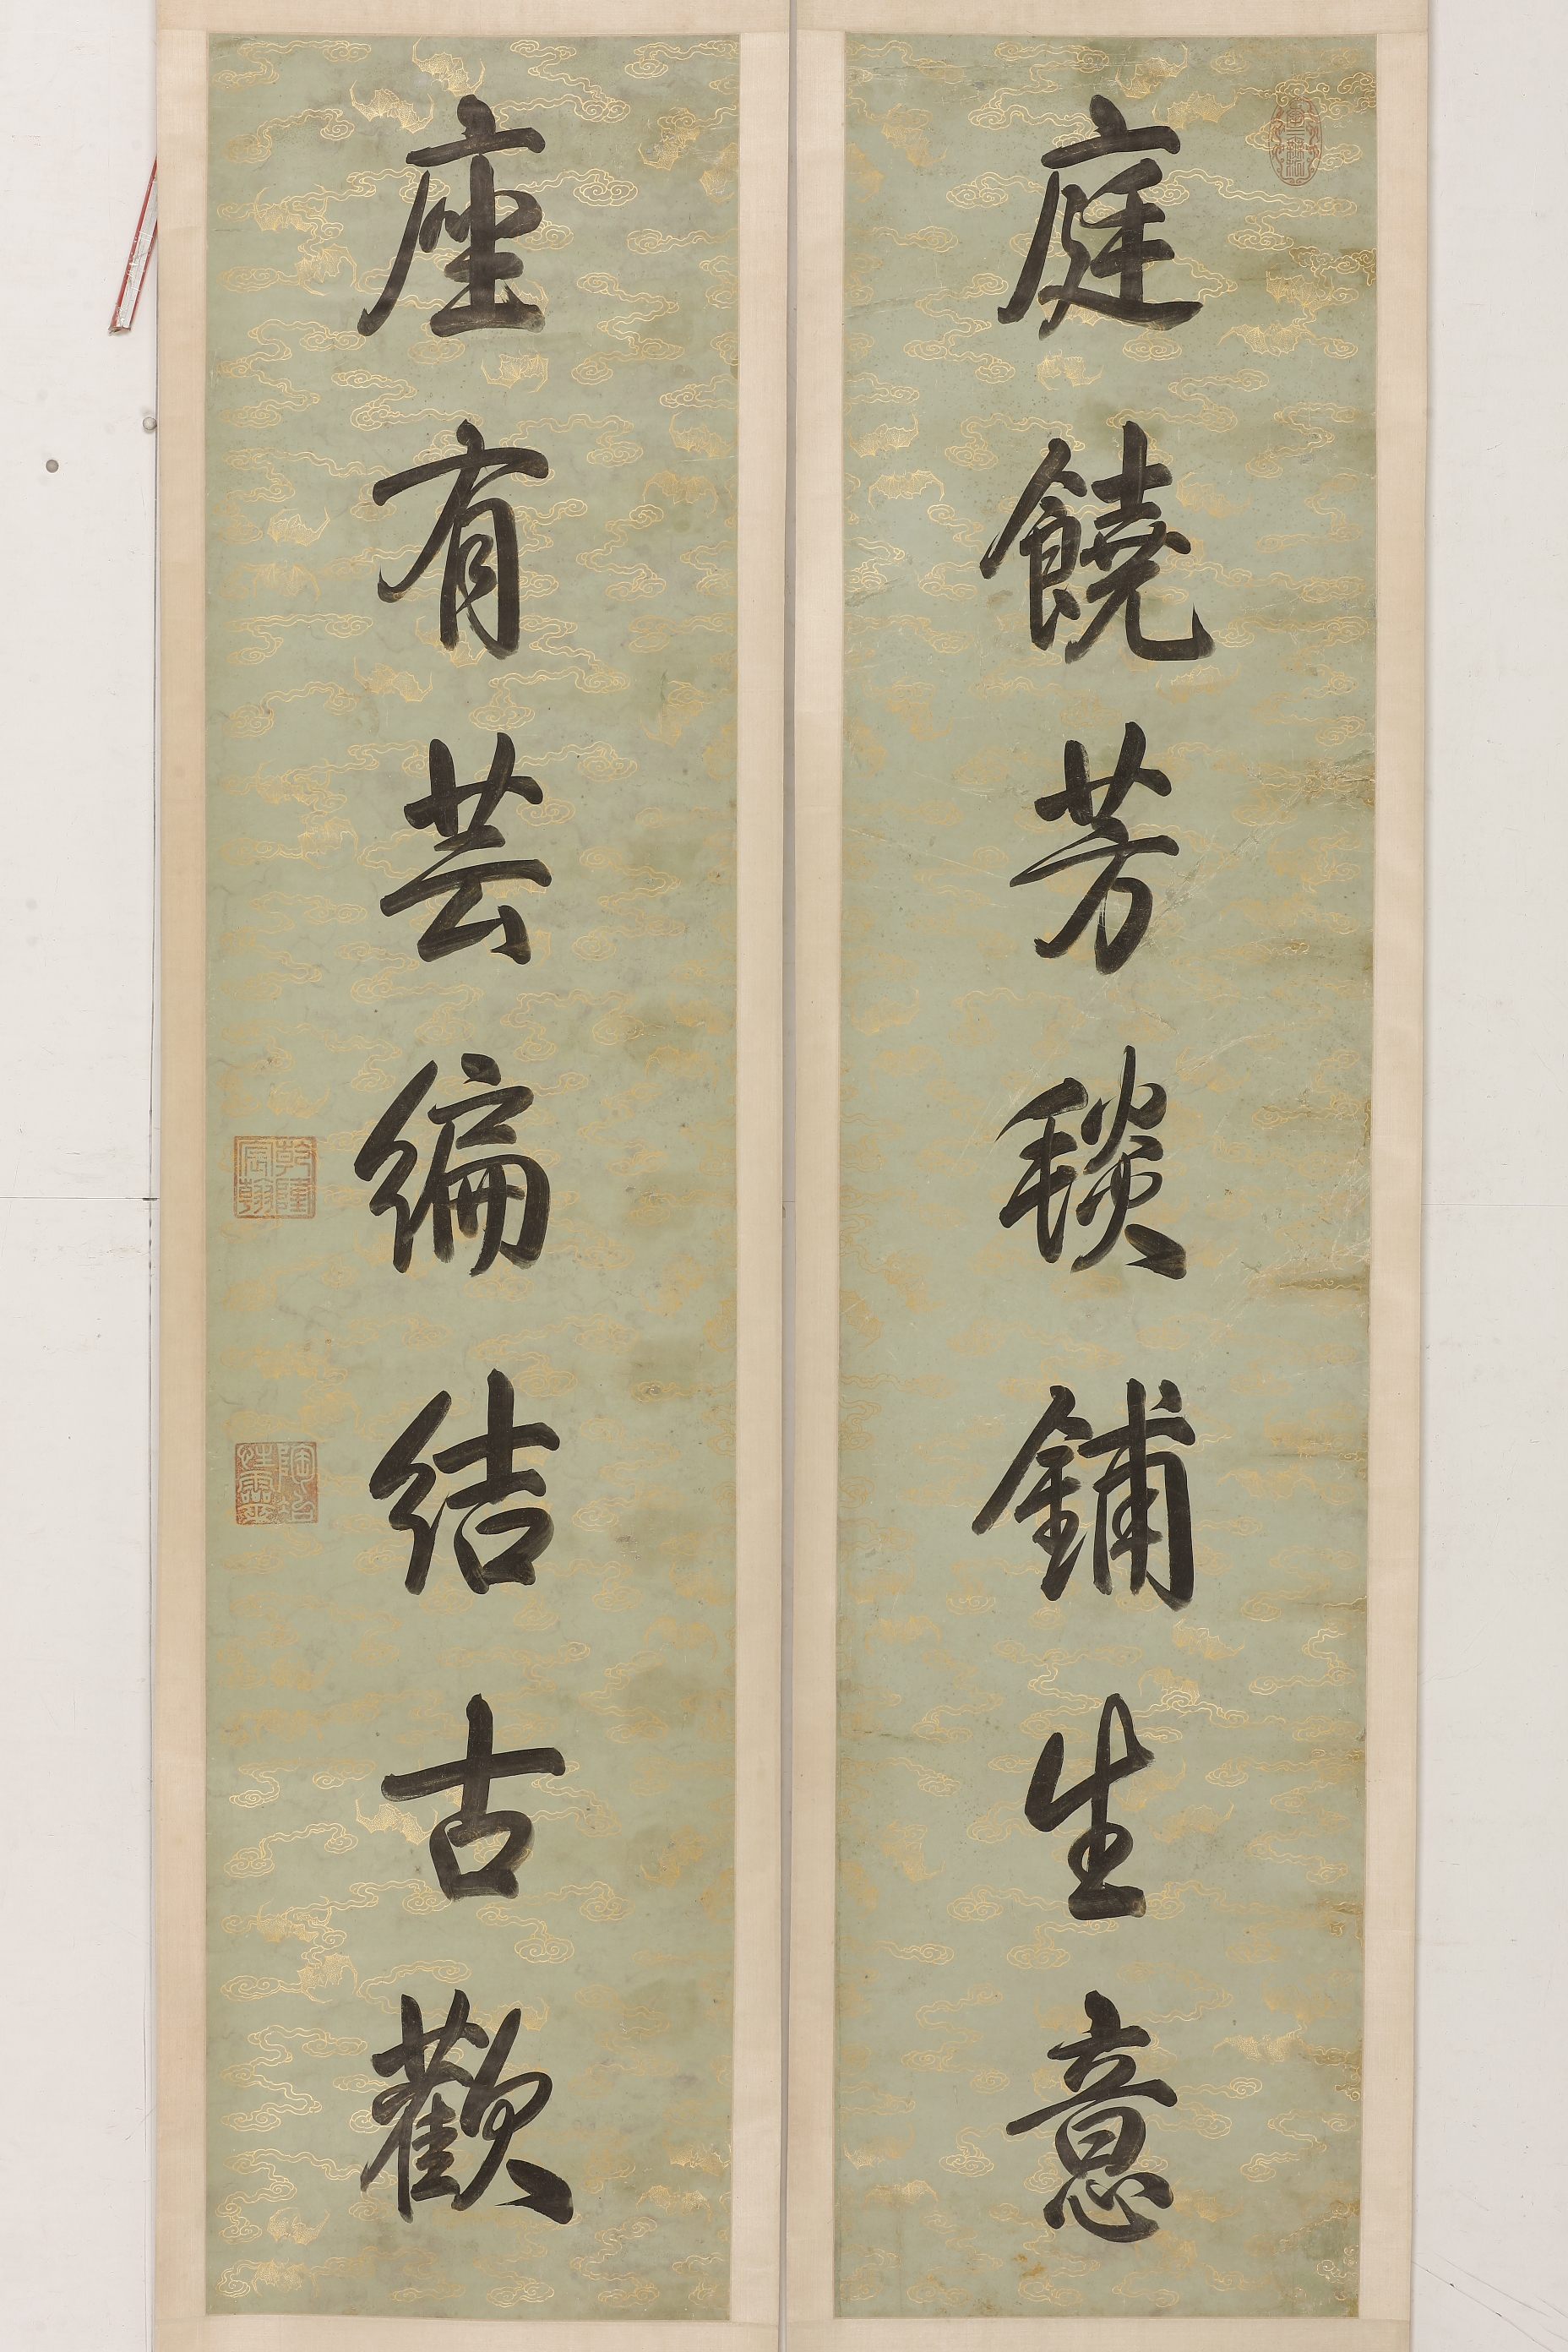 庭饒芳毯鋪生意
座有芸編結古歡
乾隆宸翰
陶冶性靈